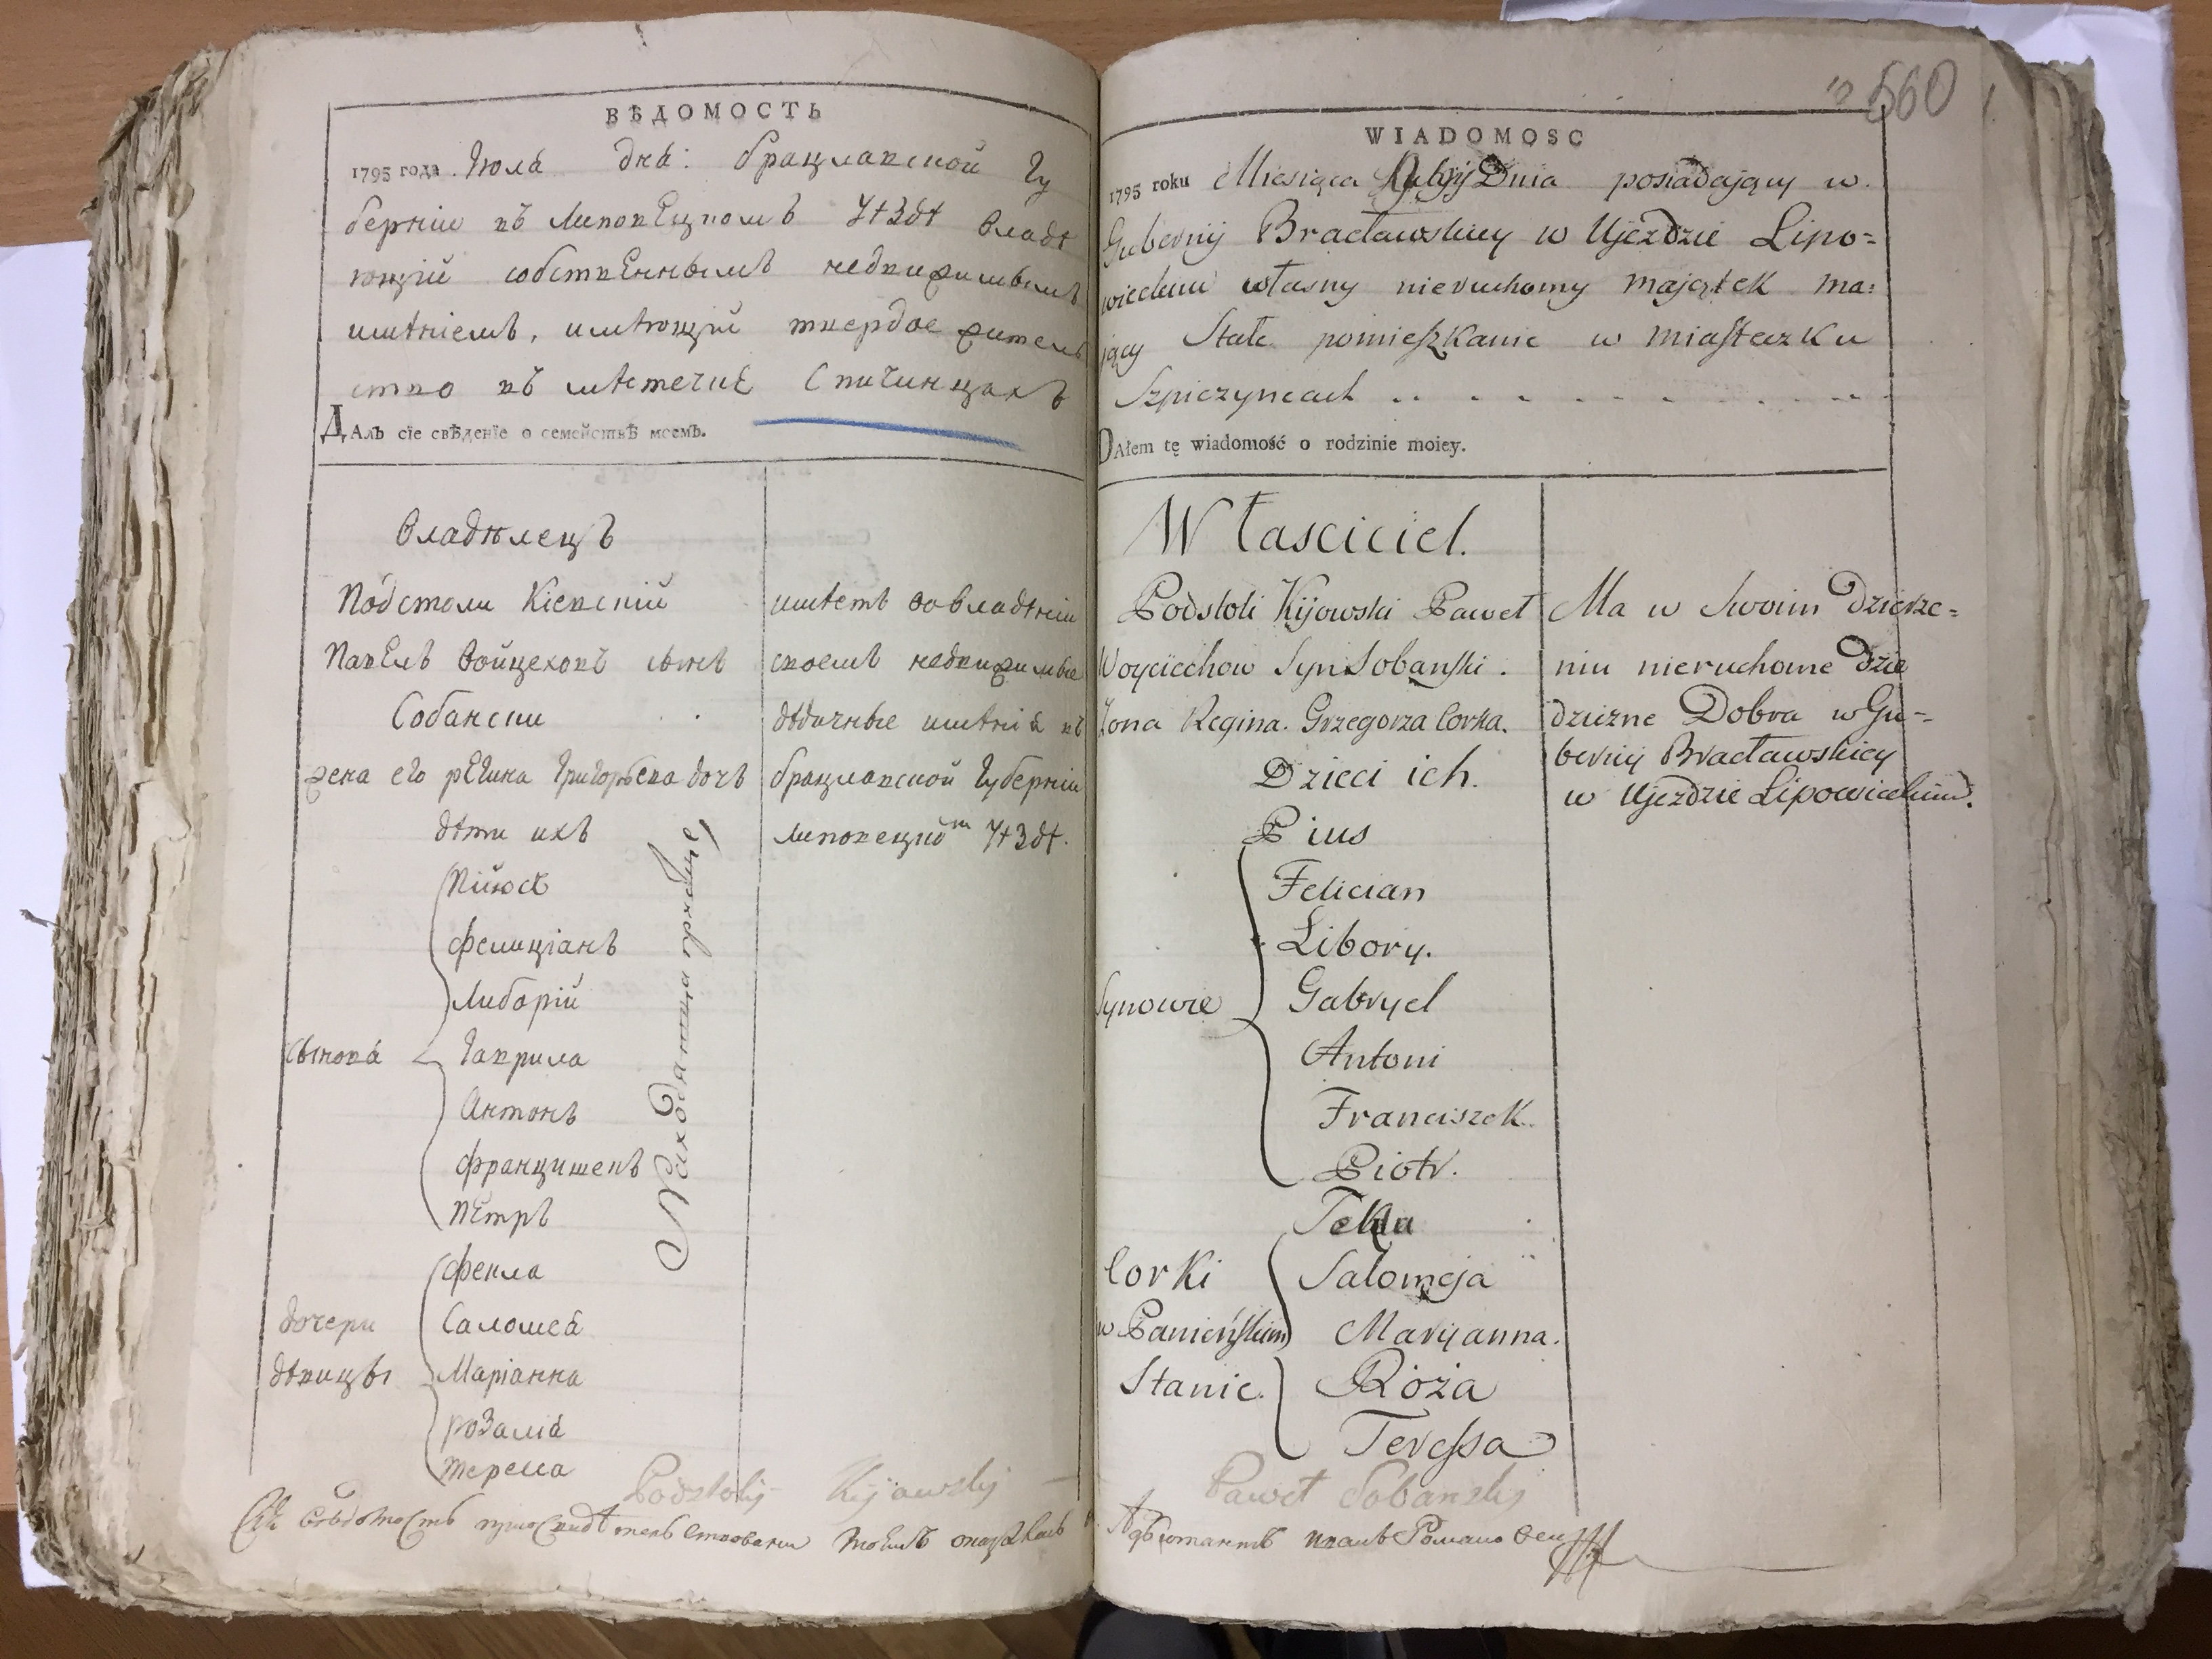 ВѢДОМОСТЬ
1795 года Іюля дня: брацлавской гу
берніи въ липовецкомъ уѣздѣ владѣ
ющій собственнымъ недвижимымъ
имѣніемъ, имѣющій твердое житель
ство въ мѣстечкѣ Спичинцахъ
Далъ сїе свѣденїе о семействѣ моемъ.
владѣлецъ
Подстоли Кіевскій
Павелъ войцеховъ сынъ
Собански
жена его регина григорьева дочь
дѣти ихъ
Пиюсъ
фелиціанъ
Либорій
сынова
гаврила
антонъ
францишекъ
Петръ
фекла
дочери
Саломея
дѣвицы
Маріанна
розалія
тереса
имѣетъ во владѣніи
своемъ недвижимые
дѣдичные имѣнія въ
брацлавской губерніи
липовецкомъ уѣздѣ.
Podstoly Kijowsky
560
WIADOMOSC
1795 roku Miesiąca Dnia posiadaiący w
Gubernij Bracławskiey w Ujezdzie Lipo=
wieckim własny nieruchomy majątek ma:
jący Stałe pomieszkanie w miasteczku
Szpiczyncach
DAłem tę wiadomość o rodzinie moiey.
Własciciel.
Podstoli Kijowski Paweł
Woyciechow Syn Sobanski.
Żona Regina. Grzegorza Corka.
Dzieci ich.
Pius
Felician
Libory.
Synowie
Gabryel
Antoni
Franciszek.
Piotr.
Tekla
Corki
Salomeja
w Panieńskim
Maryjanna.
Stanie.
Róża
Teressa
Ma w Swoim Dzierże=
niu nieruchome dzie
dziczne Dobra w Gu=
bernij Bracławskiey
w Ujezdzie Lipowieckim.
Paweł Sobansky